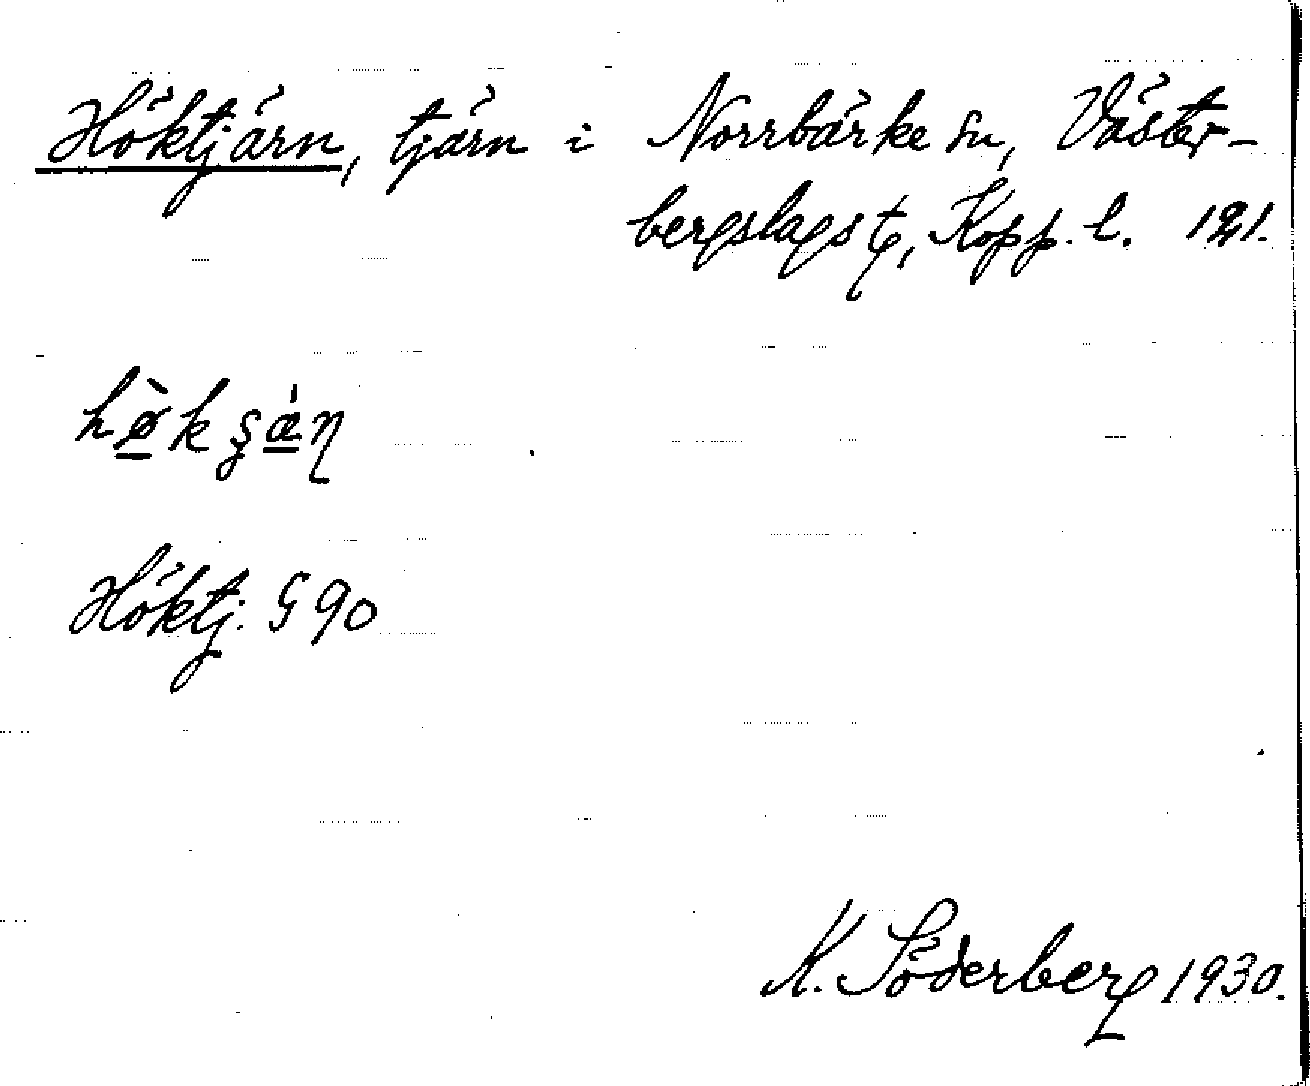 Höktjärn, tjärn i Norrbärke sn, Väster-
bergslags t, Kopp. l. 121.
Höktj. § 90
K. Söderberg 1930.